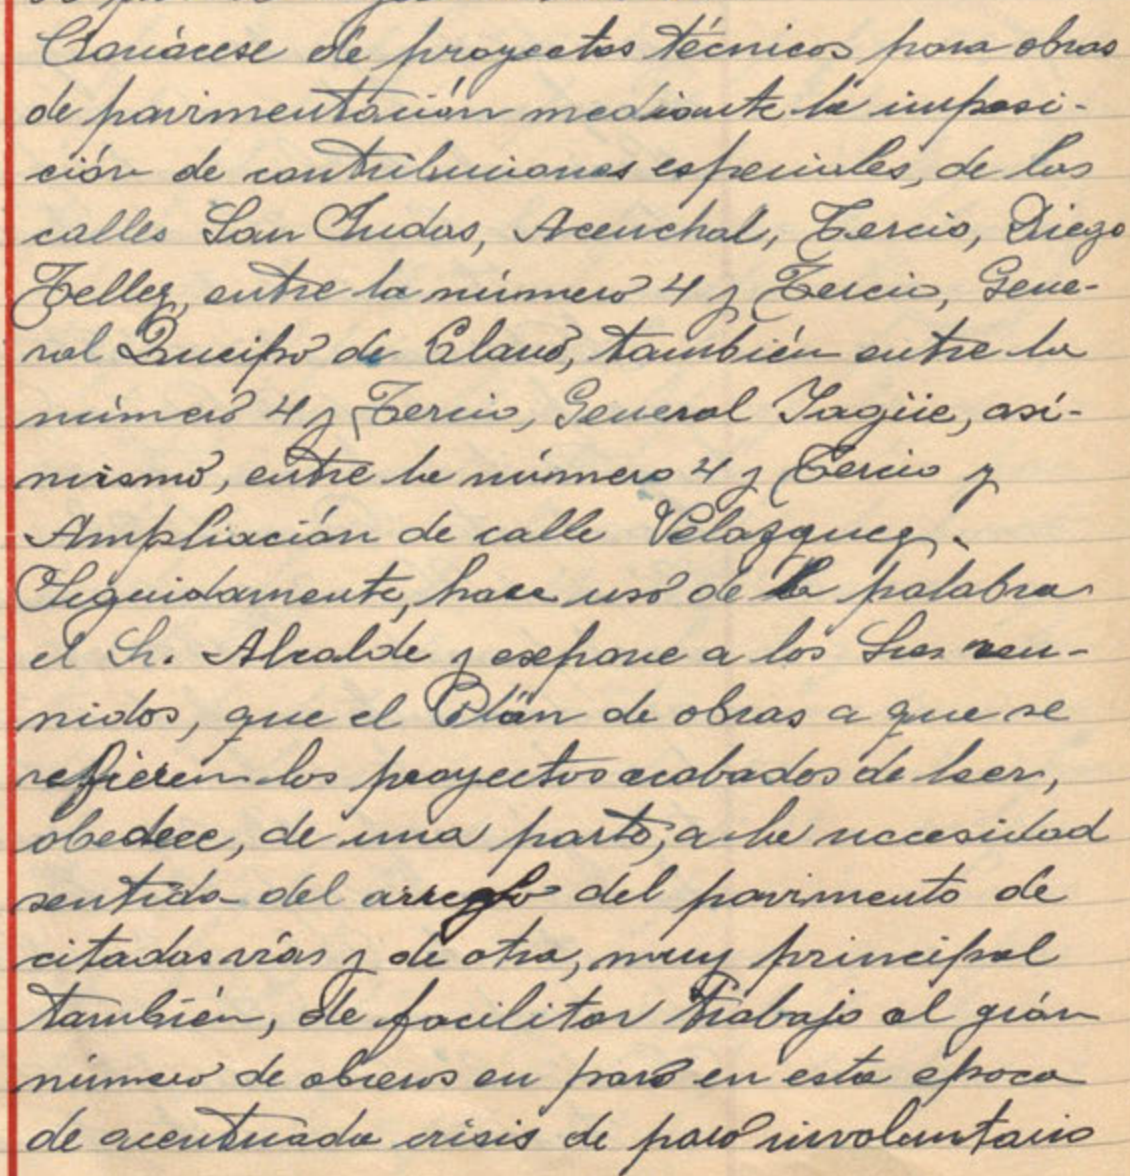 Conócese de proyectos técnicos para obras
de pavimentación mediante la imposi-
ción de contribuciones especiales, de las
calles San Judas, Aceuchal, Tercio, Diego
Tellez, entre la número 4 y Tercio, Gene-
ral Queipo de Llano, también entre la
número 4 y Tercio, General Yagüe, así-
mismo, entre la número 4 y Tercio y
Ampliación de calle Velazquez.
Seguidamente, hace uso de la palabra
el Sr. Alcalde y expone a los Sres reu-
nidos, que el Plan de obras a que se
refieren los proyectos acabados de leer,
obedece, de una parte, a la necesidad
sentida del arreglo del pavimento de
citadas vías y de otra, muy principal
también, de facilitar trabajo al gran
número de obreros en paro en esta época
de acentuada crisis de paro involuntario